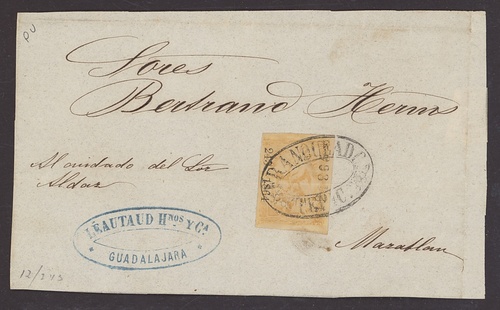 PU
Sores
Bertrand Herms
Al cuidado del Sor
Aldaz
FRANQUEADO
LÉAUTAUD HNOS Y CA
GUADALAJARA
Mazatlan
12/